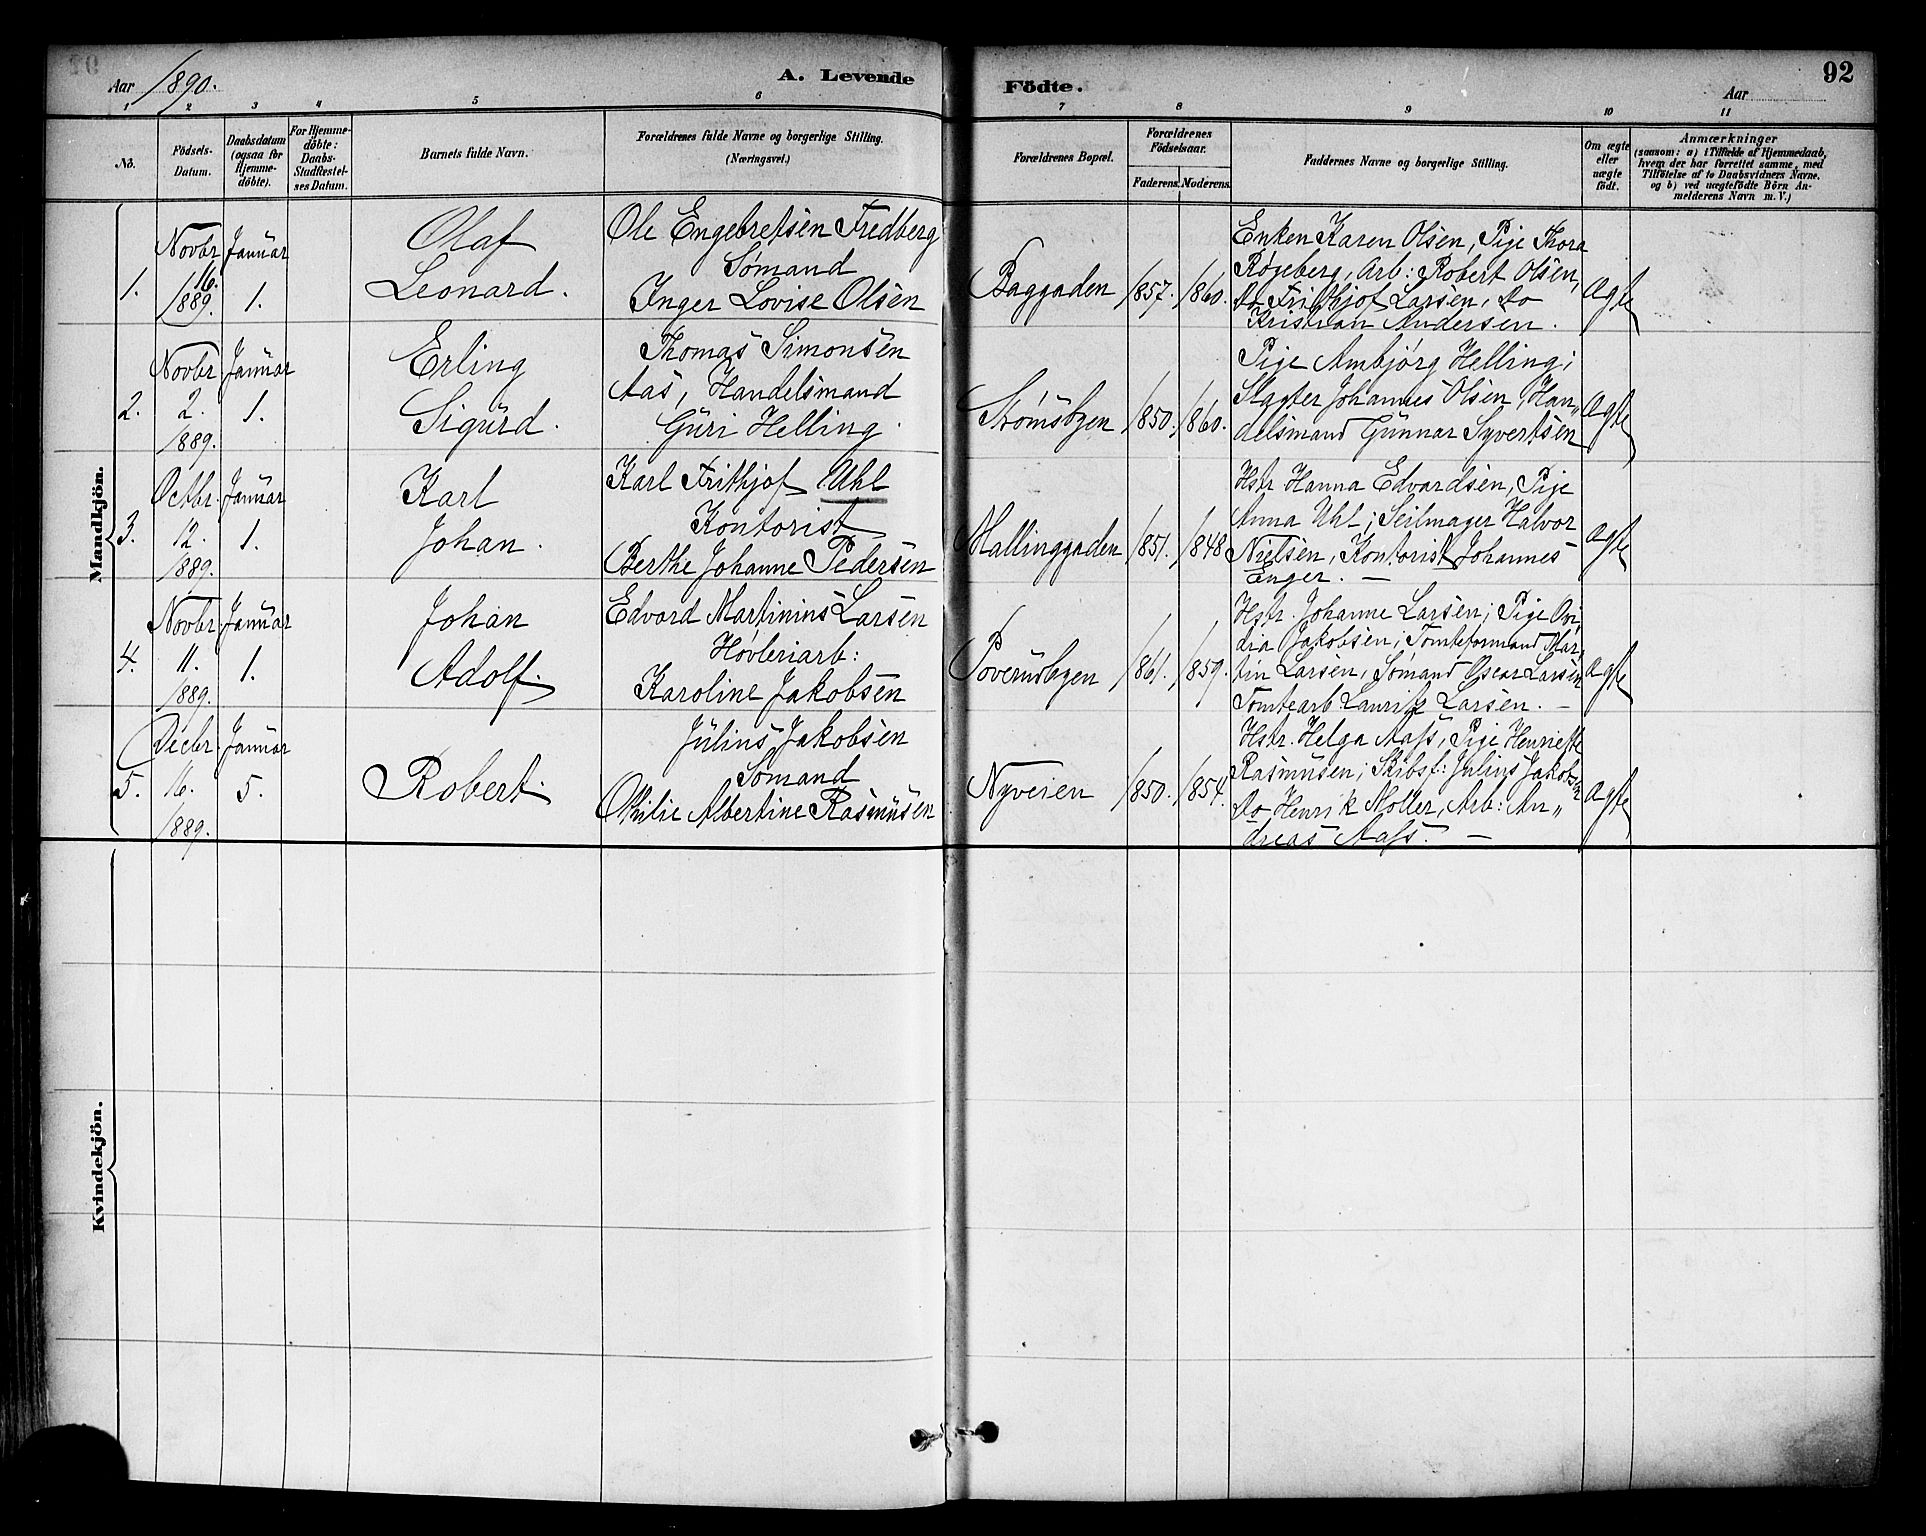 Aar 1890.
A. Levende
Födte.
Aar
92
1 2 3 4 5 6 7 8 9 10 11
Nö.
Födsels-
Datum.
Daabsdatum
(ogsaa for
Hjemme-
döbte).
For Hjemme-
döbte:
Daabs-
Stadfæstel-
ses Datum.
Barnets fulde Navn.
Forældrenes fulde Navne og borgerlige Stilling.
(Næringsvei.)
Forældrenes Bopæl.
Forældrenes
Födselsaar.
Faderens.
Moderens.
Faddernes Navne og borgerlige Stilling.
Om ægte
eller
uægte
födt.
Anmærkninger
(saasom: a) i Tilfælde af Hjemmedaab,
hvem der har forrettet samme, med
Tilföielse af to Daabsvidners Navne,
og b) ved uægtefödte Börn An-
melderens Navn m.V.)
Mandkjön.
1.
Novbr
16.
1889.
Januar
1.
Olaf
Leonard.
Ole Engebretsen Fredberg
Sømand
Inger Lovise Olsen
Baggaden
1857.
1860.
Enken Karen Olsen, Pige Thora
Røgeberg, Arb: Robert Olsen,
do Fridthjof Larsen, do
Kristian Andersen.
Ægte
2.
Novbr
2.
1889.
Januar
1.
Erling
Sigurd.
Thomas Simonsen
Aas, Handelsmand
Guri Helling.
Strømsbyen
1850.
1860.
Pige Ambjörg Helling;
Slagter Johannes Olsen, Han„
delsmand Gunnar Syvertsen
Ægte
3.
Octbr.
12.
1889.
Januar
1.
Karl
Johan.
Karl Frithjof Uhl
Kontorist
Berthe Johanne Pedersen
Mallinggaden
1851.
1848
Hstr Hanna Edvardsen, Pige
Anna Uhl; Seilmager Halvor
Nielsen, Kontorist Johannes
Enger. —
Ægte
4.
Novbr
11.
1889.
Januar
1.
Johan
Adolf.
Edvard Martinius Larsen
Høvleriarb:
Karoline Jakobsen
Poverudbyen
1861.
1859.
Hstr. Johanne Larsen; Pige Ovi„
dia Jakobsen; Tomteformand Mar„
tin Larsen, Sømand Oscar Larsen
Tomtearb Lauritz Larsen. —
Ægte
5.
Decbr.
16.
1889.
Januar
5.
Robert.
Julius Jakobsen
Sømand
Othilie Albertine Rasmusen
Nyveien
1850.
1854.
Hstr. Helga Aass, Pige Henriette
Rasmusen; Skibsf: Julius Jakobsen
do Henrik Moller, Arb: An„
dreas Aass. —
Ægte
Kvindekjön.